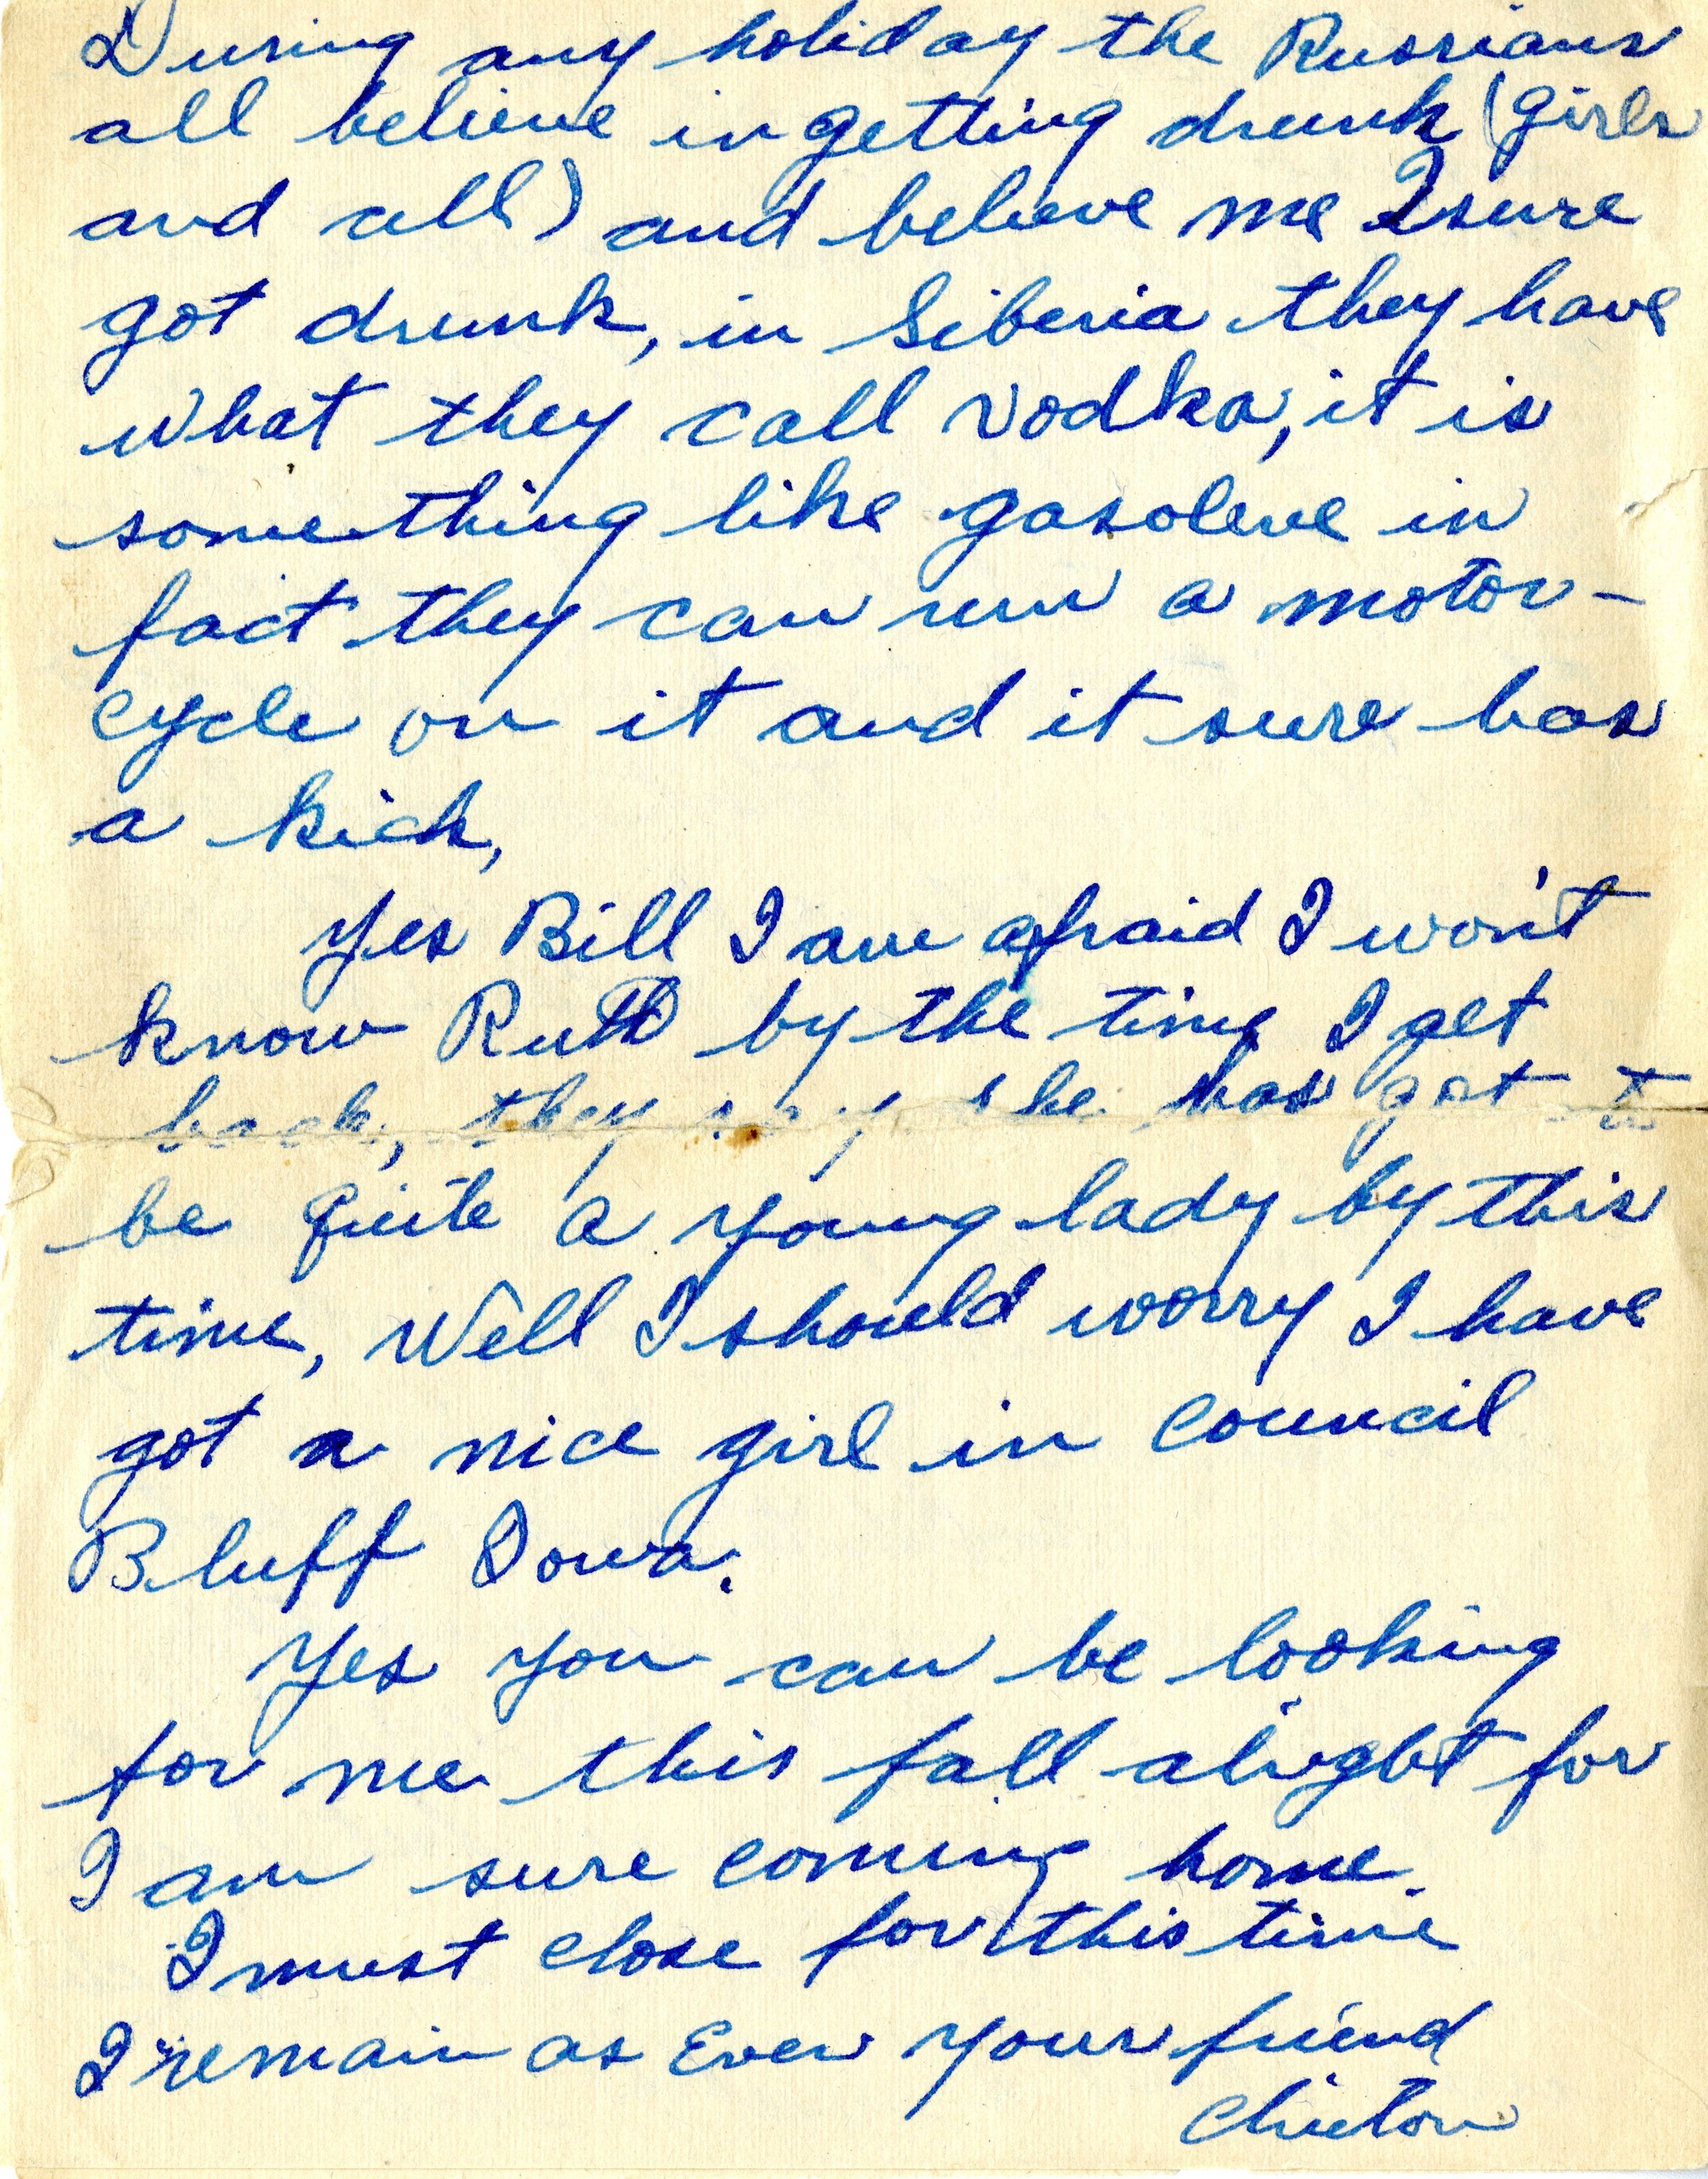 During any holiday the Russians
all believe in getting drunk (girls
and all) and believe me I sure
got drunk, in Siberia they have
what they call vodka, it is
something like gasolene in
fact they can run a motor-
cycle on it and it sure has
a kick,
Yes Bill I am afraid I won't
know Ruth by the time I get
back, they say she has got to
be quite a young lady by this
time, Well I should worry I have
got a nice girl in Council
Bluff Iowa.
Yes you can be looking
for me this fall alright for
I am sure coming home.
I must close for this time
I remain as Ever your friend
Clinton